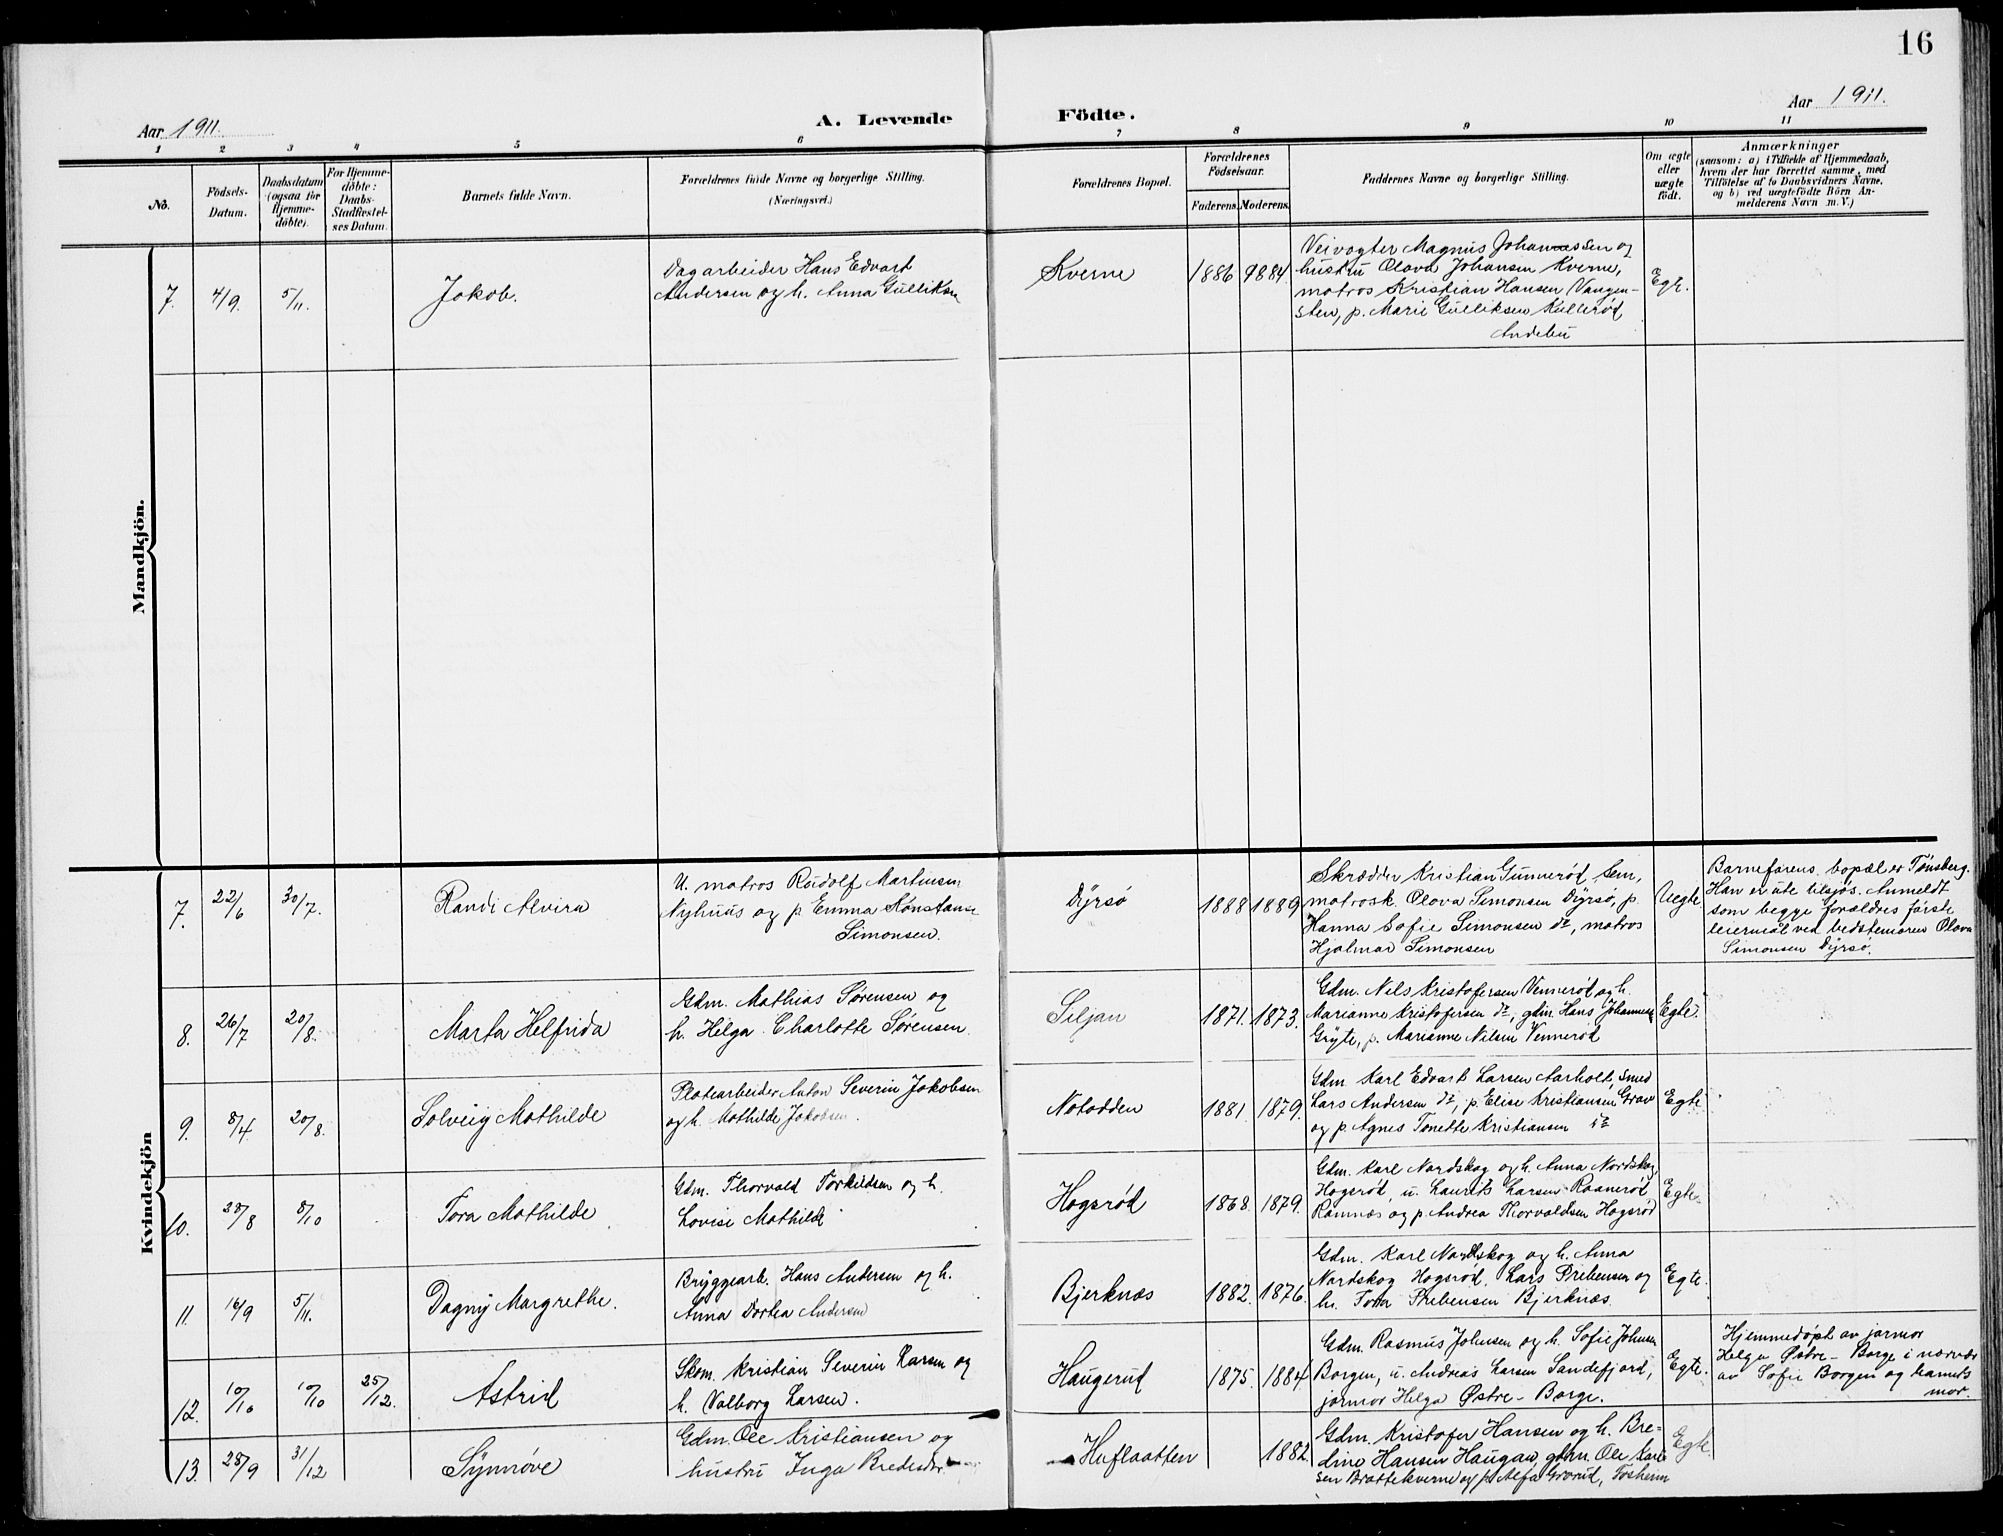 16
Aar 1911.
A. Levende
Födte.
Aar 1911.
1 2 3 4 5 6 7 8 9 10 11
No.
Födsels-
Datum.
Daabsdatum
(ogsaa for
Hjemme-
døbte).
For Hjemme-
døbte:
Daabs-
Stadfæstel-
ses Datum.
Barnets fulde Navn.
Forældrenes fulde Navne og borgerlige Stilling.
(Næringsvei.)
Forældrenes Bopæl.
Forældrenes
Födselsaar.
Faderens. Moderens.
Faddernes Navne og borgerlige Stilling.
Om ægte
eller
uægte
født.
Anmærkninger
(saasom: a) i Tilfælde af Hjemmedaab,
hvem der har forrettet samme, med
Tilföielse af to Daabsvidners Navne,
og b) ved uægtefödte Börn An-
melderens Navn m. V.)
Mandkjön.
7. 4/9. 5/11.
Jokob.
Dagarbeider Hans Edvart
Andersen og h. Anna Gulliksen
Kverne
1886 1884.
Veivogter Magnus Johannessen og
hustru Olava Johansen Kverne,
matros Kristian Hansen Vangen-
sten, p. Marie Gulliksen Kullerød
Andebu
Egte.
Kvindekjön
7. 22/6 30/7.
Randi Alvira
U. matros Rudolf Martinsen
Nyhuus og p. Emma Konstanse
Simonsen.
Dyrsø
1888 1889
Skrædder Kristian Gunnerød Sem,
matrosk. Olava Simonsen Dyrsø, p.
Hanna Sofie Simonsen do, matros
Hjalmar Simonsen
Uegte
Barnefarens bopæl er Tønsberg.
Han er ute tilsjøs. Anmeldt
som begge forældres første
leiermål ved bedstemoren Olava
Simonsen Dyrsø.
8. 26/7 20/8.
Marta Helfrida
Gdm. Mathias Sørensen og
h. Helga Charlotte Sørensen
Siljan
1871. 1873.
Gdm. Nils Kristofersen Vennerød og h.
Marianne Kristofersen do, gdm. Hans Johannesen
Gryte, p. Marianne Nilsen Vennerød
Egte.
9. 8/4 20/8.
Solveig Mathilde
Platearbeider Anton Severin Jakobsen
og h. Mathilde Jakobsen.
Notodden
1881. 1879.
Gdm. Karl Edvart Larsen Aarholt, smed
Lars Andersen do, p. Elise Kristiansen Grav
og p. Agnes Tonette Kristiansen do
Egte
10. 28/8 8/10
Tora Mathilde
Gdm. Thorvald Torkildsen og h.
Lovise Mathilde
Hogsrød
1868. 1879.
Gdm. Karl Nordskog og h. Anna Nordskog
Hogsrød, u. Laurits Larsen Raanerød
Ramnæs og p. Andrea Thorvaldsen Hogsrød
Egte.
11. 16/9 5/11.
Dagny Margrethe.
Bryggearb. Hans Andersen og h.
Anna Dortea Andersen
Bjerknæs
1882. 1876.
Gdm. Karl Nordskog og h. Anna
Nordskog Hogsrød, Lars Prebensen og
h. Tora Prebensen Bjerknæs.
Egte.
12. 10/10 10/10 25/12.
Astrid
Skom. Kristian Severin Larsen og
h. Valborg Larsen.
Haugerud
1875. 1884
Gdm. Rasmus Johnsen og h. Sofie Johnsen
Borgen, u. Andreas Larsen Sandefjord,
jormor Helga Østre-Borge.
Egte.
Hjemmedøpt av jormor
Helga Østre-Borge i nærvær
av Sofie Borgen og barnets
mor.
13. 28/9 31/12
Synnøve
Gdm. Ole Kristiansen og
hustru Inga
Huflaatten
1882
Gdm. Kristofer Hansen og h. Bre-
dine Hansen Haugan, gdm. Ole Kari-
sen Brattekverne og p. Alfa Grorud,
Egte.